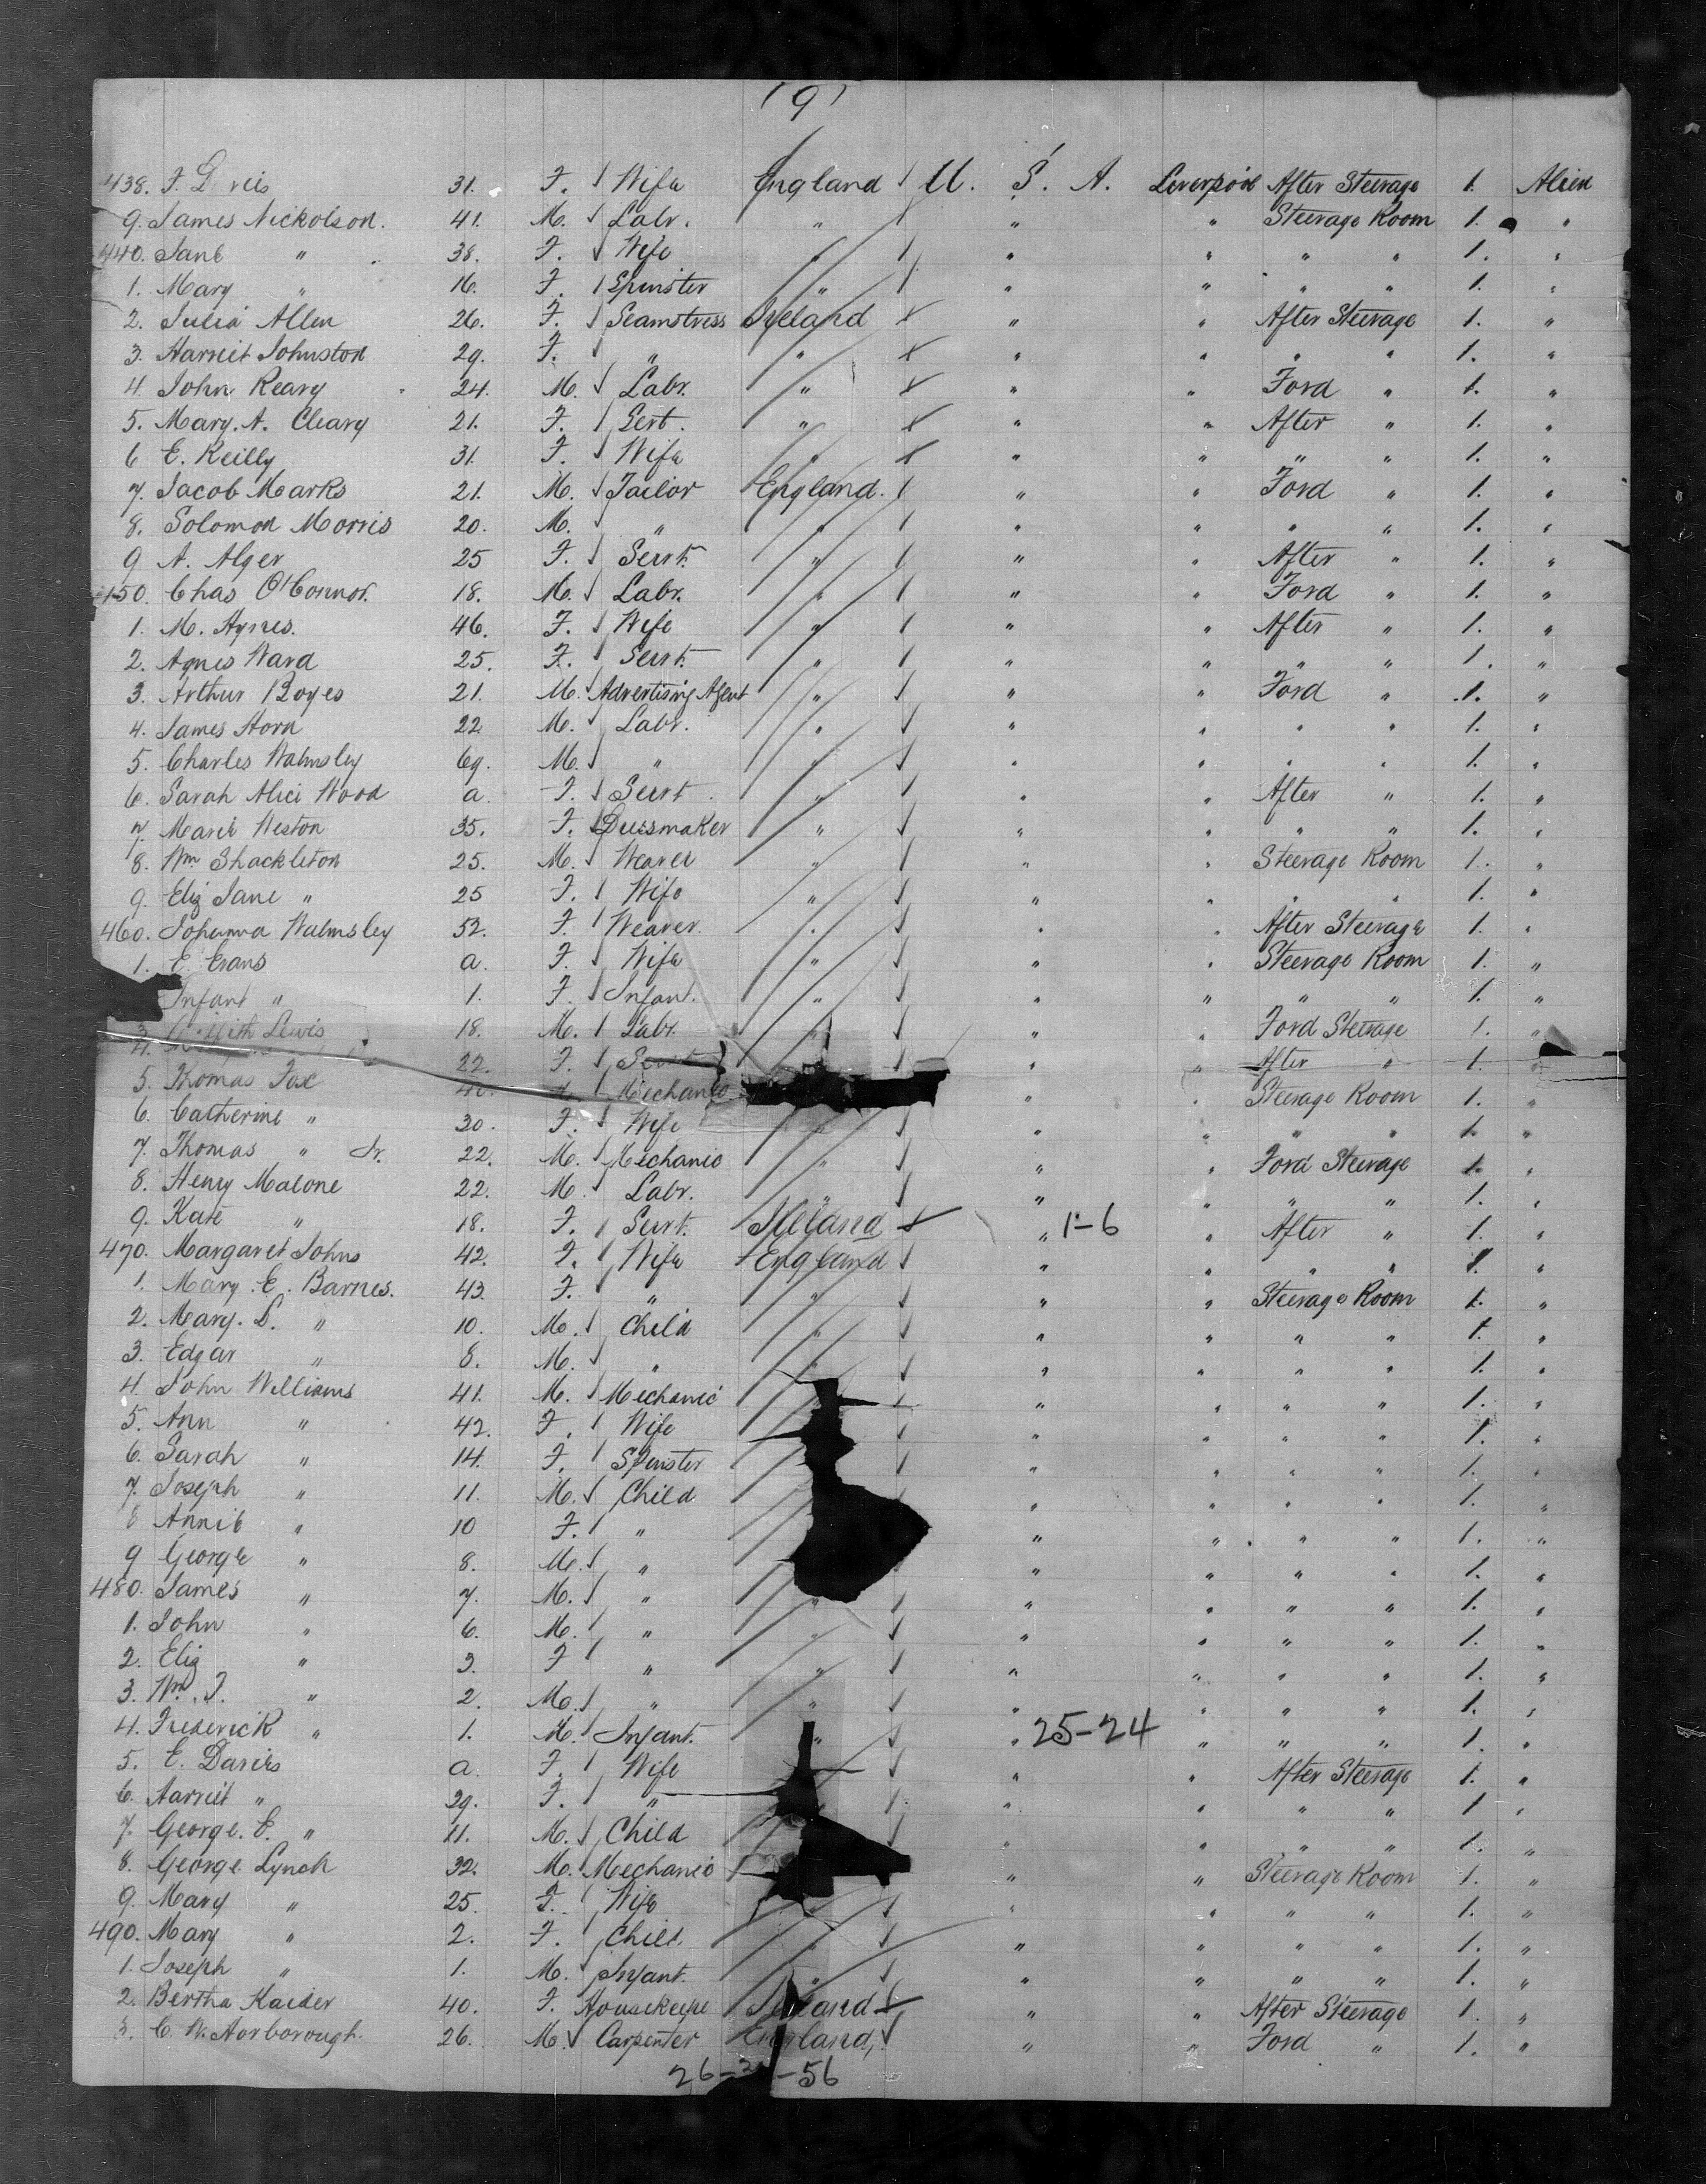 (9)
438. F. L vis 31. F. Wife England U. S. A. Liverpool After Steerage 1. Alien
9. James Nickolson. 41. M. Labr. " " " Steerage Room 1. "
440. Jane " 38. F. Wife " " " " " 1. "
1. Mary " 16. F. Spinster " " " " " 1. "
2. Julia Allen 26. F. Seamstress Ireland " " After Steerage 1. "
3. Harriet Johnston 29. F. " " " " " " 1. "
4. John Keary 24. M. Labr. " " " Ford " 1. "
5. Mary. A. Cleary 21. F. Sert. " " " After " 1. "
6 E. Reilly 31. F. Wife " " " " " 1. "
7. Jacob Marks 21. M. Tailor England. " " Ford " 1. "
8. Solomon Morris 20. M. " " " " " " 1. "
9 A. Alger 25 F. Servt. " " " After " 1. "
450. Chas O'Connor. 18. M. Labr. " " " Ford " 1. "
1. M. Aynes. 46. F. Wife " " " After " 1. "
2. Agnes Ward 25. F. Servt. " " " " " 1. "
3. Arthur Boyes 21. M. Advertising Agent " " " Ford " 1. "
4. James Horn 22 M. Labr. " " " " " 1. "
5. Charles Walmsley 69. M. " " " " " " 1. "
6. Sarah Alice Wood a. F. Servt. " " " After " 1. "
7. Marie Weston 35. F. Dressmaker " " " " " 1. "
8. Wm Shackleton 25. M. Weaver " " " Steerage Room 1. "
9. Eliz Jane " 25 F. Wife " " " " " 1. "
460. Johanna Walmsley 52. F. Weaver. " " " After Steerage 1. "
1. E. Evans a. F. Wife " " " Steerage Room 1. "
Infant " 1. F. Infant. " " " " " 1. "
3. Lewis 18. M. Labr. " " " Ford Steerage 1. "
4. 22. F. " " After " 1. "
5. Thomas Fox Mechanic " " Steerage Room 1. "
6. Catherine " 30. F. Wife " " " " 1. "
7. Thomas " Jr. 22. M. Mechanic " " " Ford Steerage 1. "
8. Henry Malone 22. M. Labr. " " " " " 1. "
9. Kate " 18. F. Servt. Ireland " 1-6 " After " 1. "
470. Margaret Johns 42. F. Wife England " " " " 1. "
1. Mary. E. Barnes. 43. F. " " " " Steerage Room 1. "
2. Mary. L. " 10. M. Child " " " " " 1. "
3. Edgar " 8. M. " " " " " " 1. "
4. John Williams 41. M. Mechanic " " " " 1. "
5. Ann " 42. F. Wife " " " " 1. "
6. Sarah " 14. F. Spinster " " " " 1. "
7. Joseph " 11. M. Child " " " " 1. "
8 Annie " 10 F. " " " " " 1. "
9 George " 8. M. " " " " " 1. "
480. James " 7. M. " " " " " " 1. "
1. John " 6. M. " " " " " " 1. "
2. Eliz " 3. F " " " " " " 1. "
3. Wm. J. " 2. M. " " " " " " 1. "
4. Frederick " 1. M. Infant. " " 25-24 " " " 1. "
5. E. Davies a. F. Wife " " After Steerage 1. "
6. Harriet " 29. F. " " " " " 1 "
7. George. E. " 11. M. Child " " " " 1. "
8. George Lynch 32. M. Mechanic " " Steerage Room 1. "
9. Mary " 25. F. Wife " " " " 1. "
490. Mary " 2. F. Child. " " " " " 1. "
1. Joseph " 1. M. Infant. " " " " " 1. "
2. Bertha Kaider 40. F. Housekeepe Ireland " " After Steerage 1. "
3. C. W. Harborough. 26. M. Carpenter England, " " Ford " 1. "
26- -56